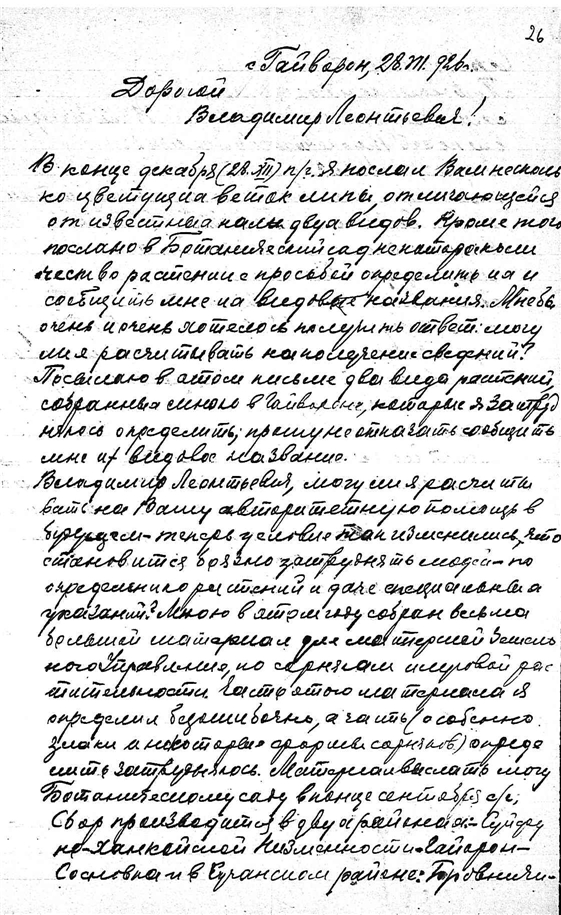 26
с. Гайворон, 28.VII. 926 г.
Дорогой
Владимир Леонтьевич!
В конце декабря (28.XII) п/г. я послал Вам несколь
ко цветущих веток липы, отличающейся
от известных нам двух видов. Кроме того
послано в Ботанический сад некоторое коли
чество растений с просьбой определить их и
сообщить мне их видовые названия. Мне бы
очень и очень хотелось получить ответ: могу
ли я расчитывать на получение сведений?
Посылаю в этом письме два вида растений,
собранных мною в Гайвороне, которые я затруд
няюсь определить; прошу не отказать сообщить
мне их видовое название.
Владимир Леонтьевич, могу ли я расчиты
вать на Вашу авторитетную помощь в
будущем - теперь условие так изменились, что
становится боязно затруднять людей - по
определению растений и даче специальных
указаний? Мною в этом году собран весьма
большой материал для Земель
ного Управления, по сорнякам и луговой рас
тительности. Часть этого материала я
определил безошибочно, а часть (особенно
злаки и некоторые сорняков) опреде
лить затрудняюсь. Материал выслать могу
Ботаническому саду в конце сентября с/г;
Сбор производится в двух районах:
Ханкайской Низменности - Гайворон -
Сосновка и в Сучанском районе: